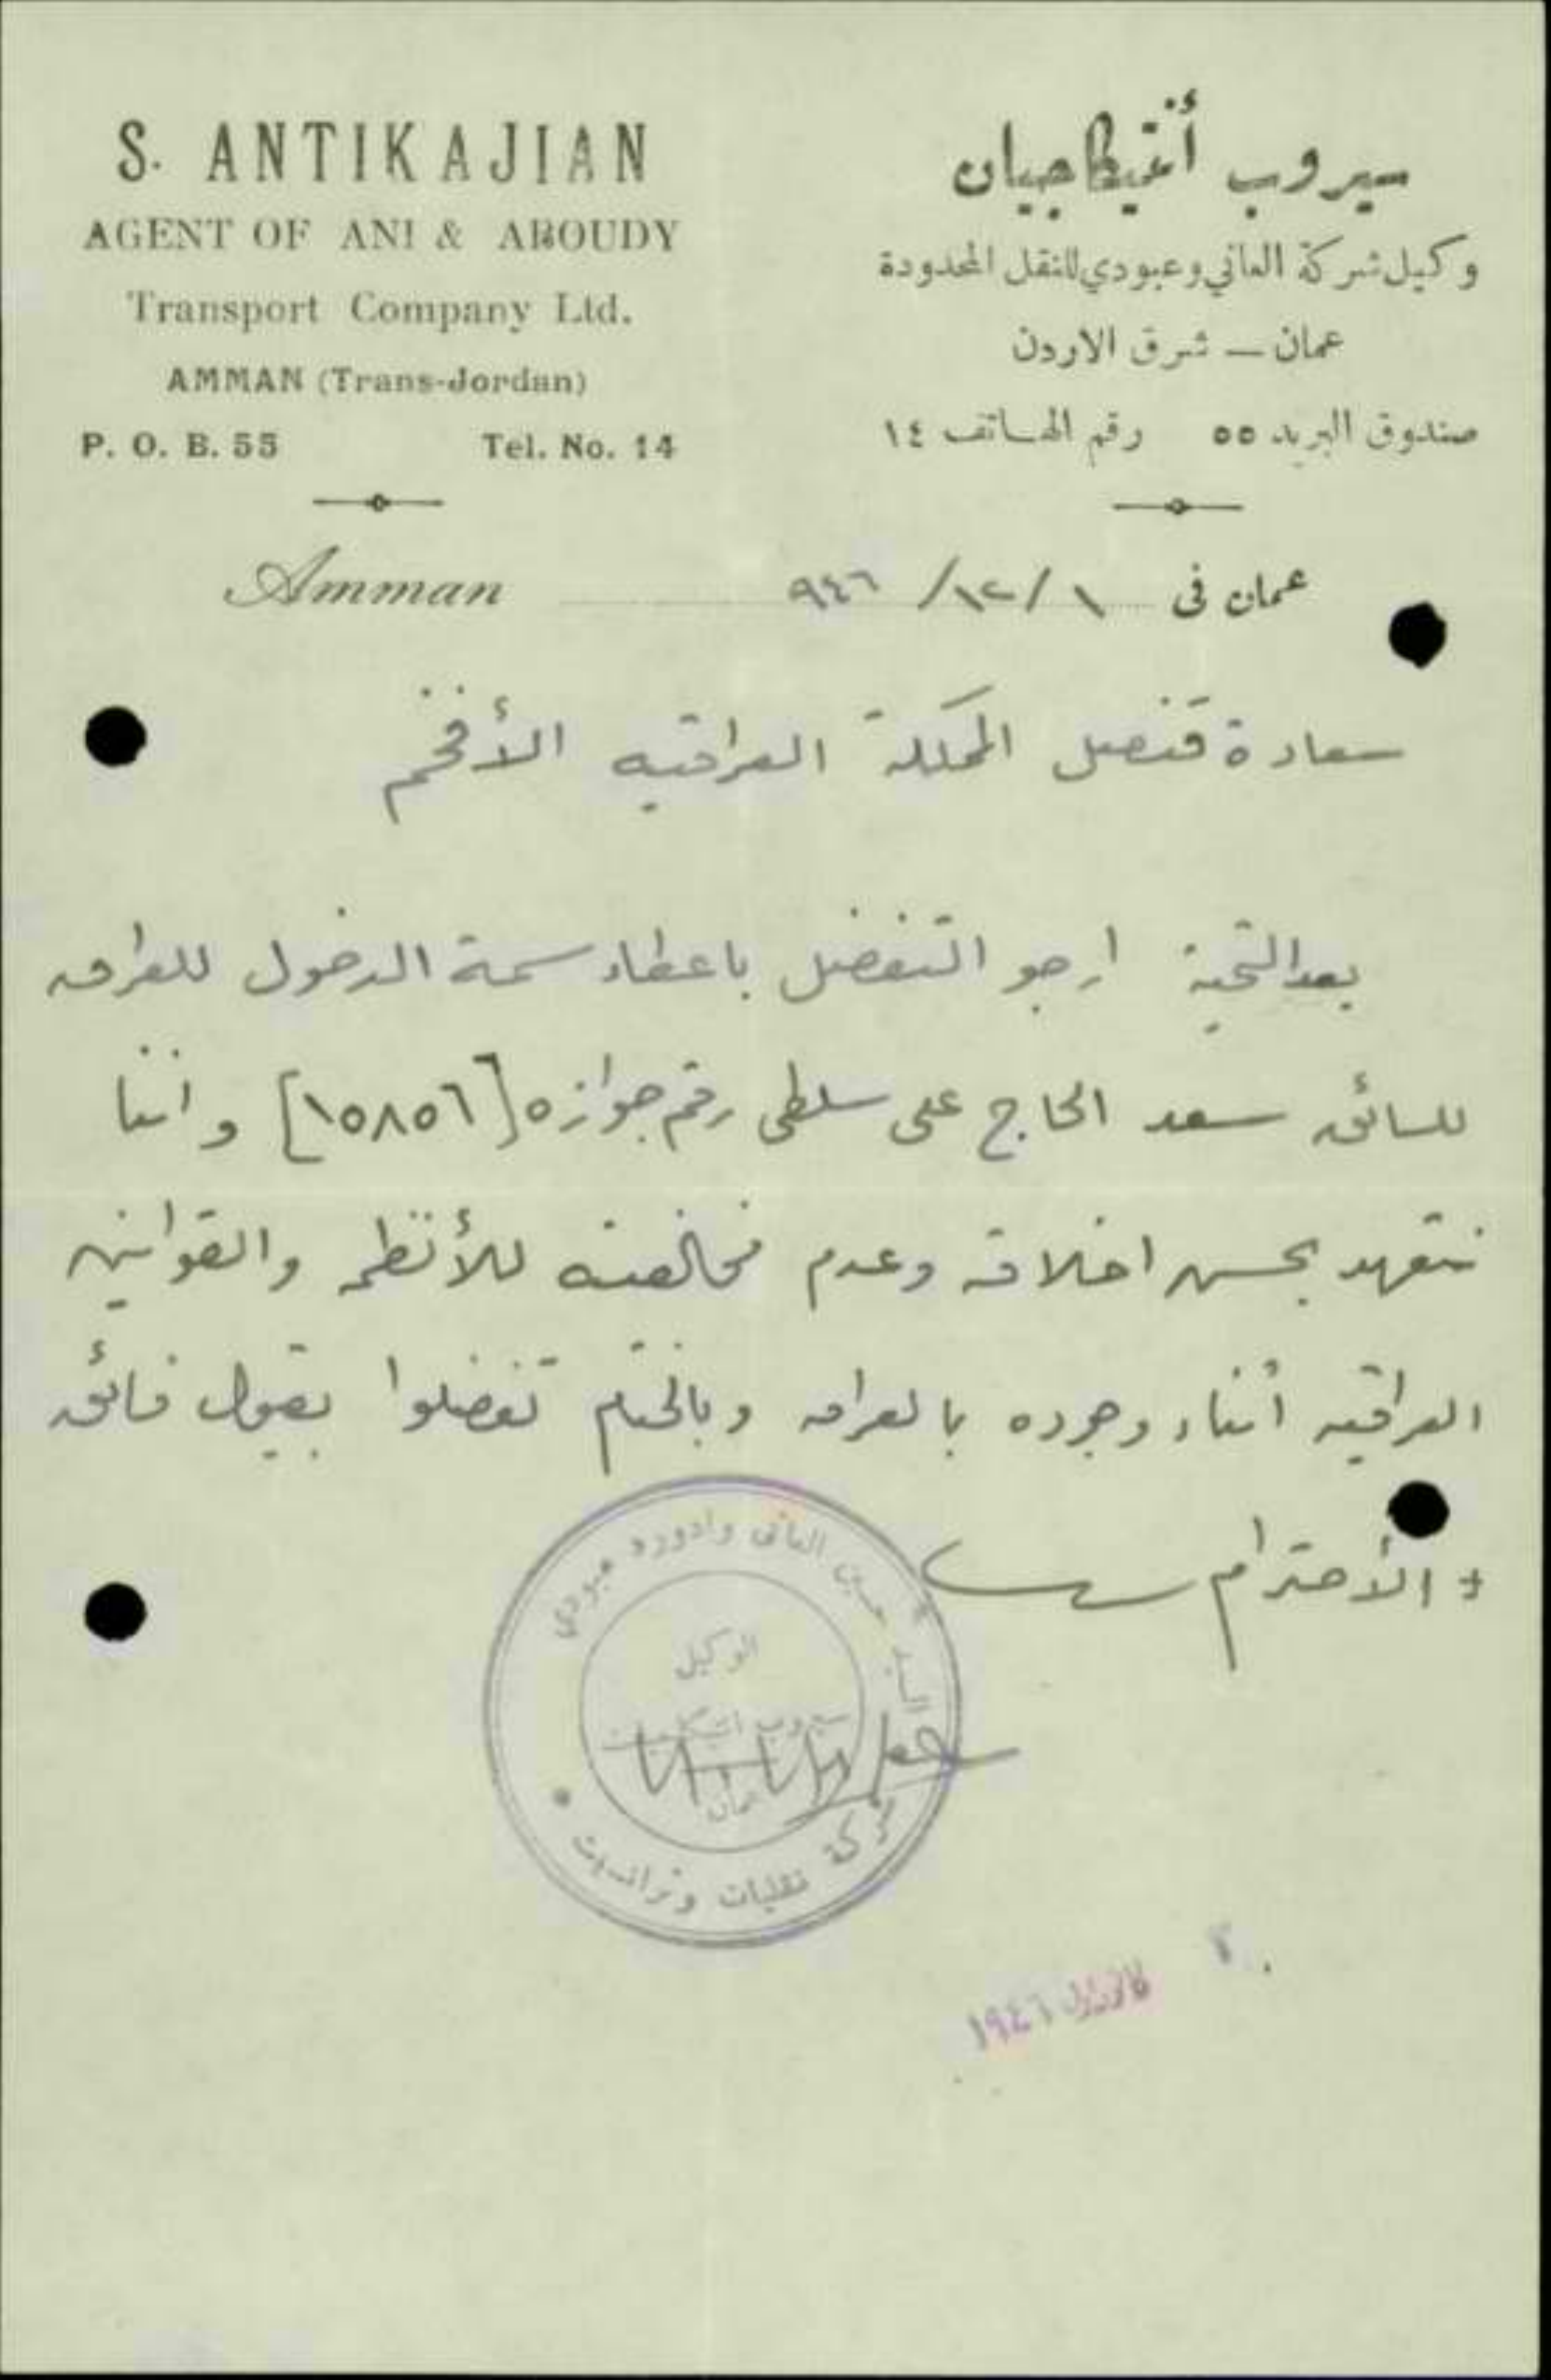 S. ANTIKAJIAN
AGENT OF ANI & ABOUDY
Transport Company Ltd.
AMMAN (Trans-Jordan)
P. O. B. 55 Tel. No. 14
سيروب أنتيكاجيان
وكيل شركة العاني وعبودي للنقل المحدودة
عمان — شرق الاردن
صندوق البريد ٥٥ رقم الهاتف ١٤
Amman
عمان فى ١ /١٢/ ٩٤٦
سعادة قنصل المملكة العراقيه الأفخم
بعد التحية ارجو التفضل باعطاء سمة الدخول للعراق
للسائق سعد الحاج على سلطى رقم جوازه [١٥٨٥٦] واننا
نتعهد بحسن اخلاقه وعدم مخالفته للأنظمه والقوانين
العراقيه أثناء وجوده بالعراق وبالختام تفضلوا بقبول فائق
الأحترام
السيد حسين العانى وادورد عبودي
الوكيل
سيروب
عمان
شركة نقليات وترانسيت
١٩٤٦